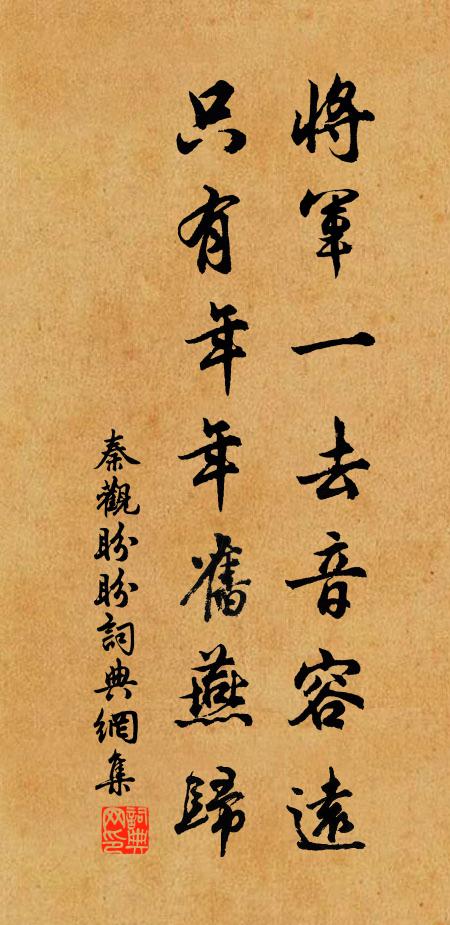 將軍一去音容遠
只有年年舊燕歸
秦觀盼盼詞典網集
詞典網印